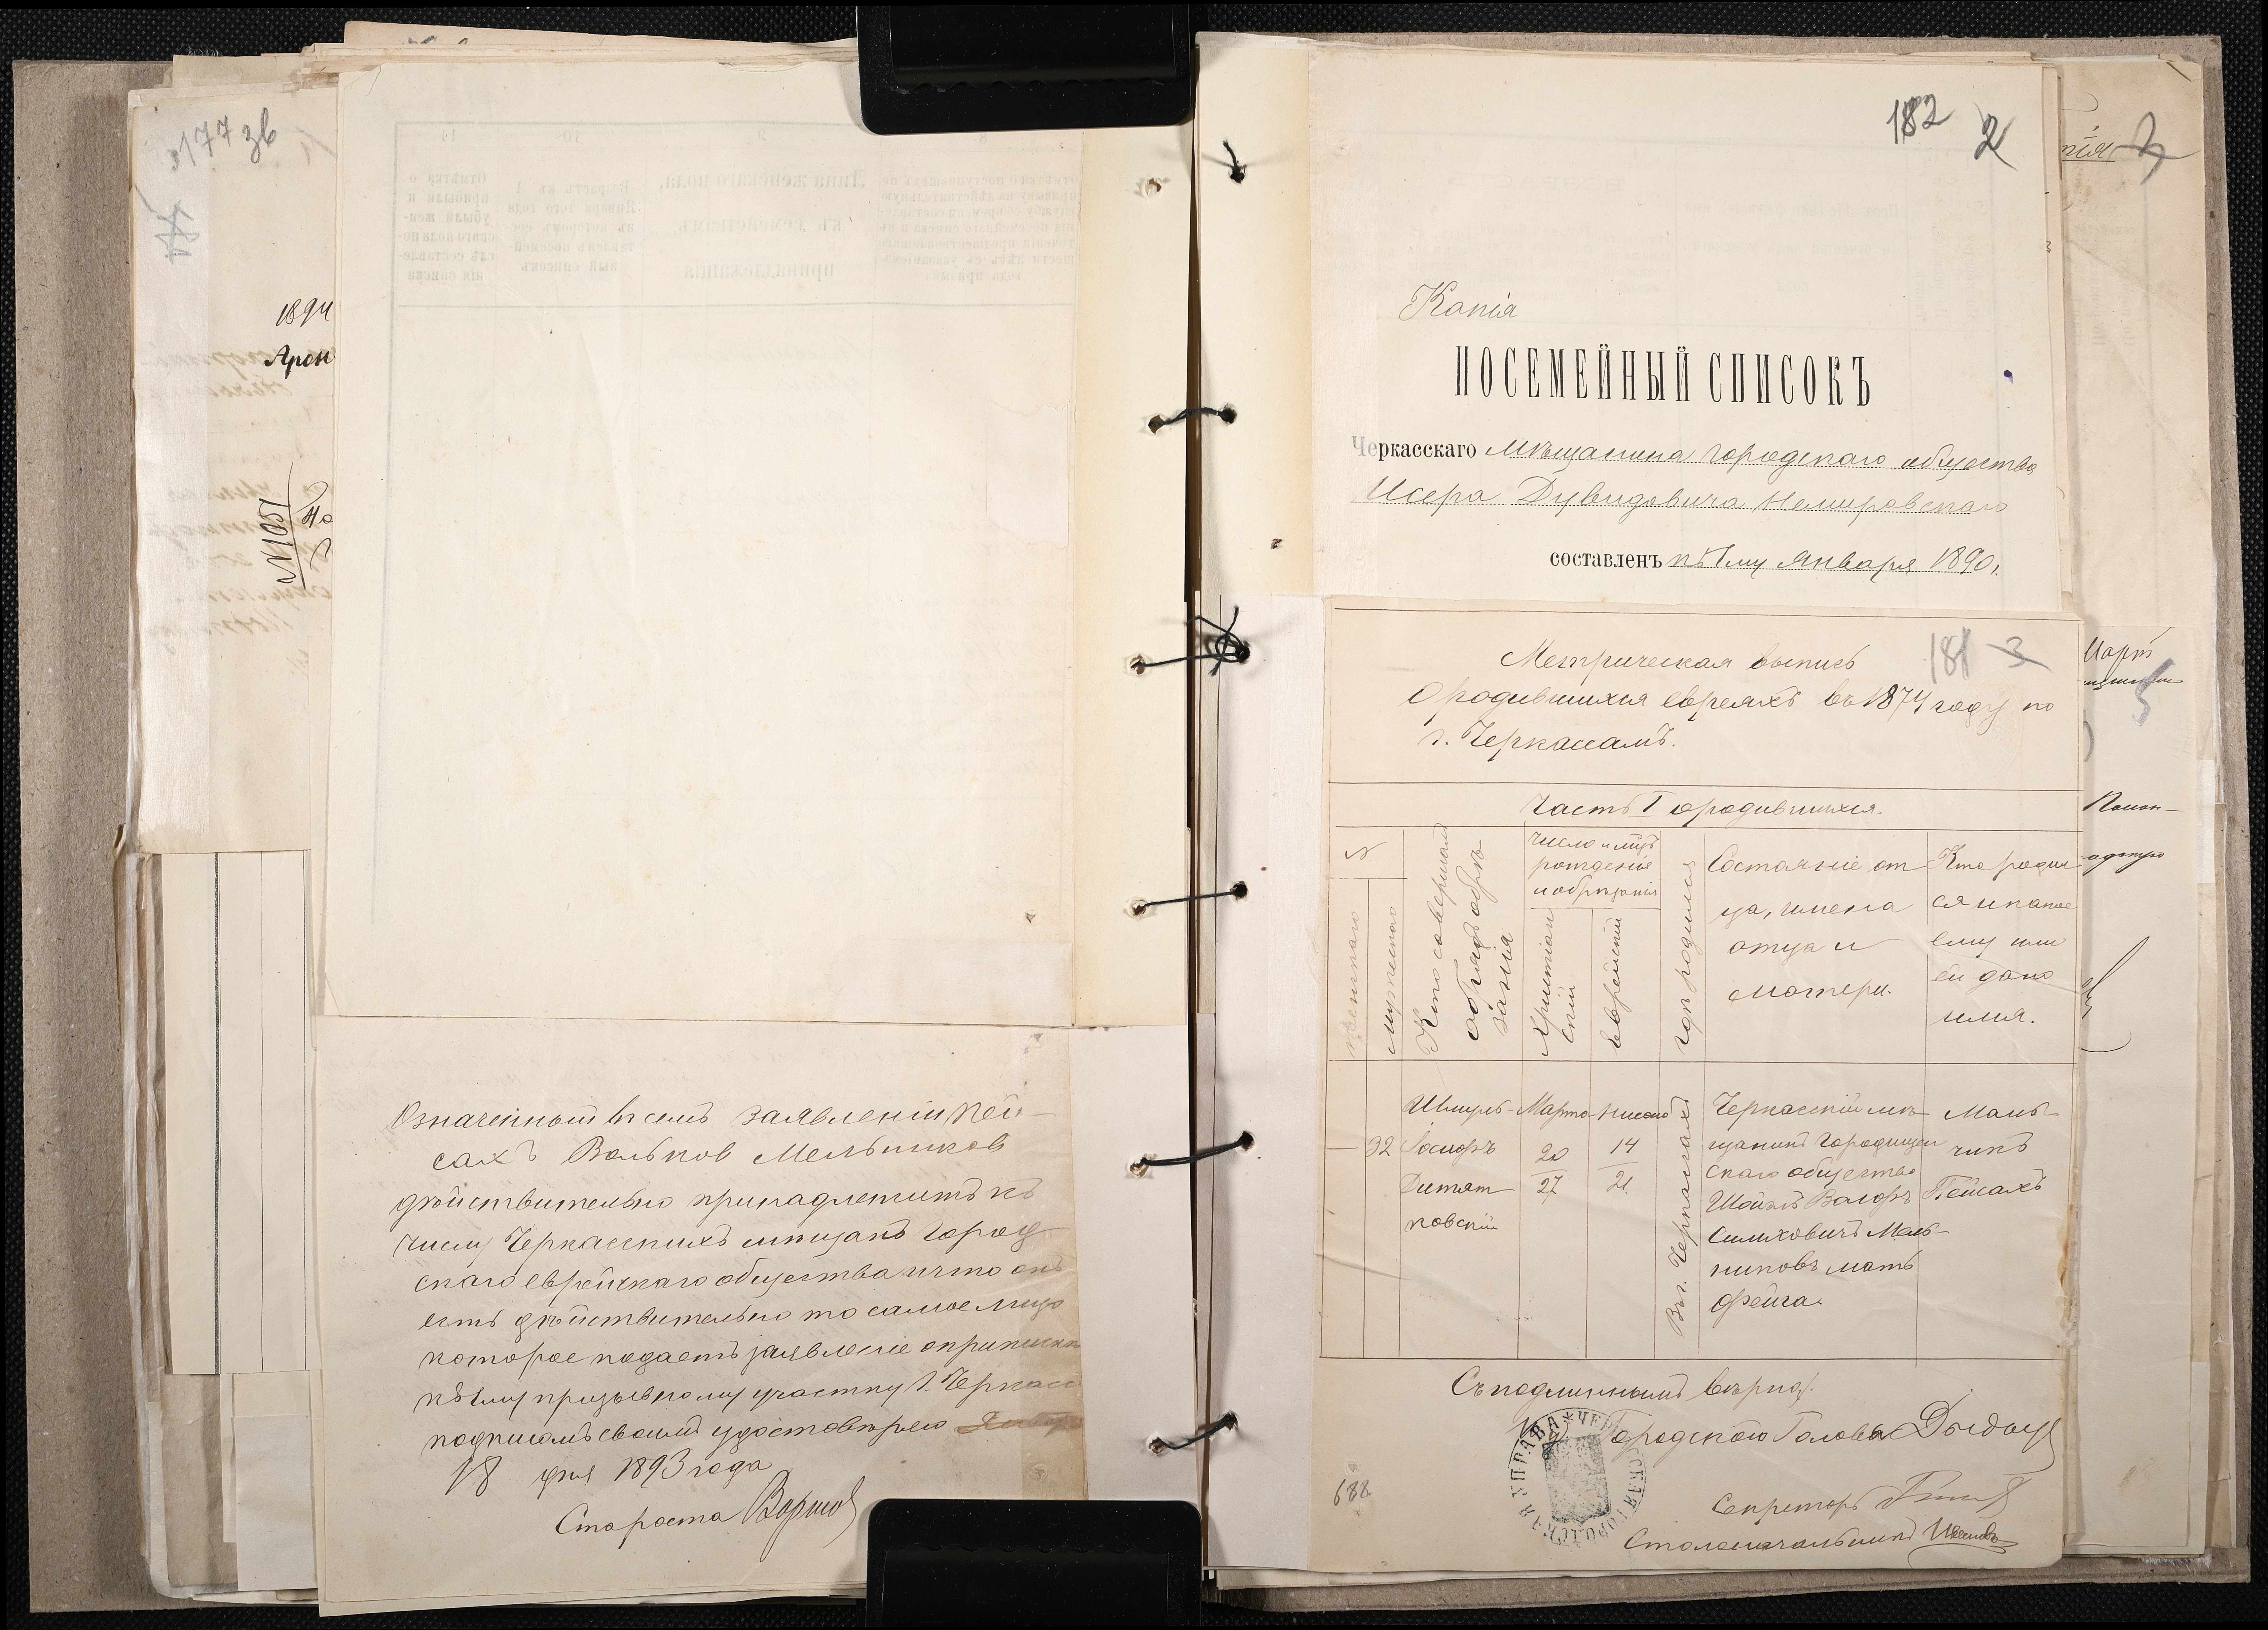 177 зв
1894
Арон
№1051
На
Означенный въ семъ заявленіи Пей-
сахъ Вольков Мельников
действительно принадлежитъ къ
числу Черкасскихъ мещанъ Город
скаго еврейскаго общества и что онъ
есть действительно то самое лицо
которое подаетъ заявленіе о припискѣ
къ 1му призывному участку г. Черкасс
подписомъ своимъ удостовѣряю
18 дня 1893 года
Староста
182 2
Копія
ПОСЕМЕЙНЫЙ СПИСОКЪ
Черкасскаго мѣщанина городскаго общества
Исера Дувидовича Немировскаго
составленъ къ 1му Января 1890 г.
181 3
Метрическая выпись
о родившихся евреяхъ въ 1874 году по
г. Черкассамъ.
Часть I о родившихся.
№
женскаго
мужскаго
Кто совершал
обрядъ обрѣ
занія
Число и мѣц
рожденія
и обрѣзанія
Христіан
скій
Еврейскій
Гдѣ родился
Состояніе от
ца, имена
отца и
матери.
Кто родил
ся и какое
ему или
ей дано
имя.
— 32
Шмуль
Іосифъ
Дитят
ковскій
Марта
20
27
Нисана
14
21
Въ г. Черкассахъ
Черкасскій мѣ
щанинъ Городищен
скаго общества
Шойлъ Волфъ
Симховичъ Мель-
никовъ мать
Фейга.
Маль
чикъ
Пейсахъ
Съ подлиннымъ вѣрно:
Городскаго Головы
Секретарь
Столоначальникъ
ЧЕРКАССКАЯ ГОРОДСКАЯ УПРАВА
688
Март
5